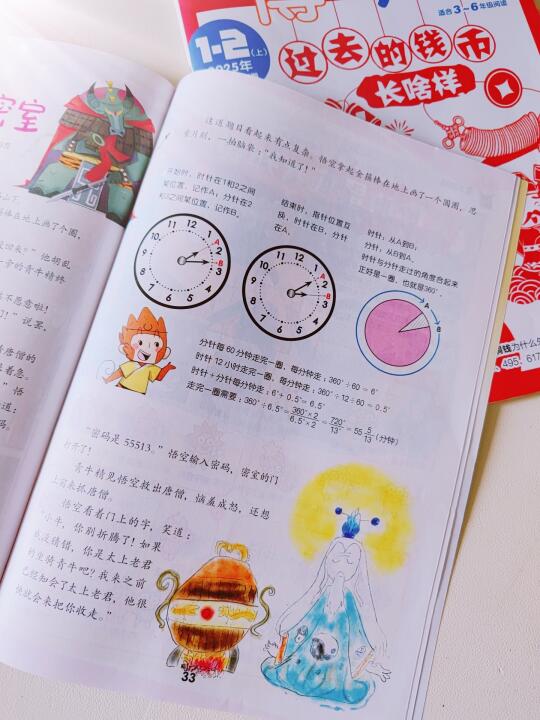 1-2(上)
2025年
适合3~6年级阅读
过去的钱币
长啥样
密室
这道题目看起来有点复杂。悟空拿起金箍棒在地上画了一个圆圈，思
考片刻，一拍脑袋：“我知道了！”
开始时，时针在1和2之间
某位置，记作A；分针在2
和3之间某位置，记作B。
结束时，指针位置互
换，时针在B，分针
在A。
时针，从A到B；
分针，从B到A。
时针与分针走过的角度合起来
正好是一圈，也就是360°
12
1
2
3
4
5
6
7
8
9
10
11
A
B
12
1
2
3
4
5
6
7
8
9
10
11
A
B
A
B
分针每60分钟走完一圈，每分钟走：360°÷60＝6°
时针12小时走完一圈，每分钟走：360°÷12÷60＝0.5°
时针＋分针每分钟走：6°＋0.5°＝6.5°
走完一圈需要：360°÷6.5°＝360°×2/6.5°×2＝720°/13°＝55 5/13（分钟）
“密码是55513。”悟空输入密码，密室的门
打开了！
青牛精见悟空救出唐僧，恼羞成怒，还想
上前来抓唐僧。
悟空看着门上的字，笑道：
小牛，你别折腾了！如果
没猜错，你是太上老君
坐骑青牛吧？我来之前
已经知会了太上老君，他很
快就会来把你收走。”
33
棒在地上画了个圈，
回去！”他胡乱
幸的青牛精终
不愿意啦！
唐僧的
着急。
”悟
道：
钱为什么
495，617